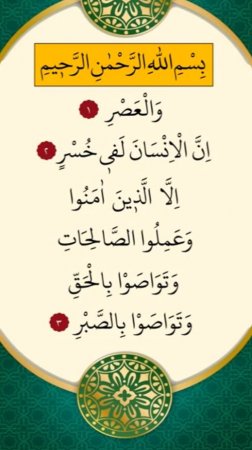 بِسْمِ اللّٰهِ الرَّحْمٰنِ الرَّح۪يمِ
وَالْعَصْرِ ١
اِنَّ الْاِنْسَانَ لَف۪ي خُسْرٍ ٢
اِلَّا الَّذ۪ينَ اٰمَنُوا
وَعَمِلُوا الصَّالِحَاتِ
وَتَوَاصَوْا بِالْحَقِّ
وَتَوَاصَوْا بِالصَّبْرِ ٣